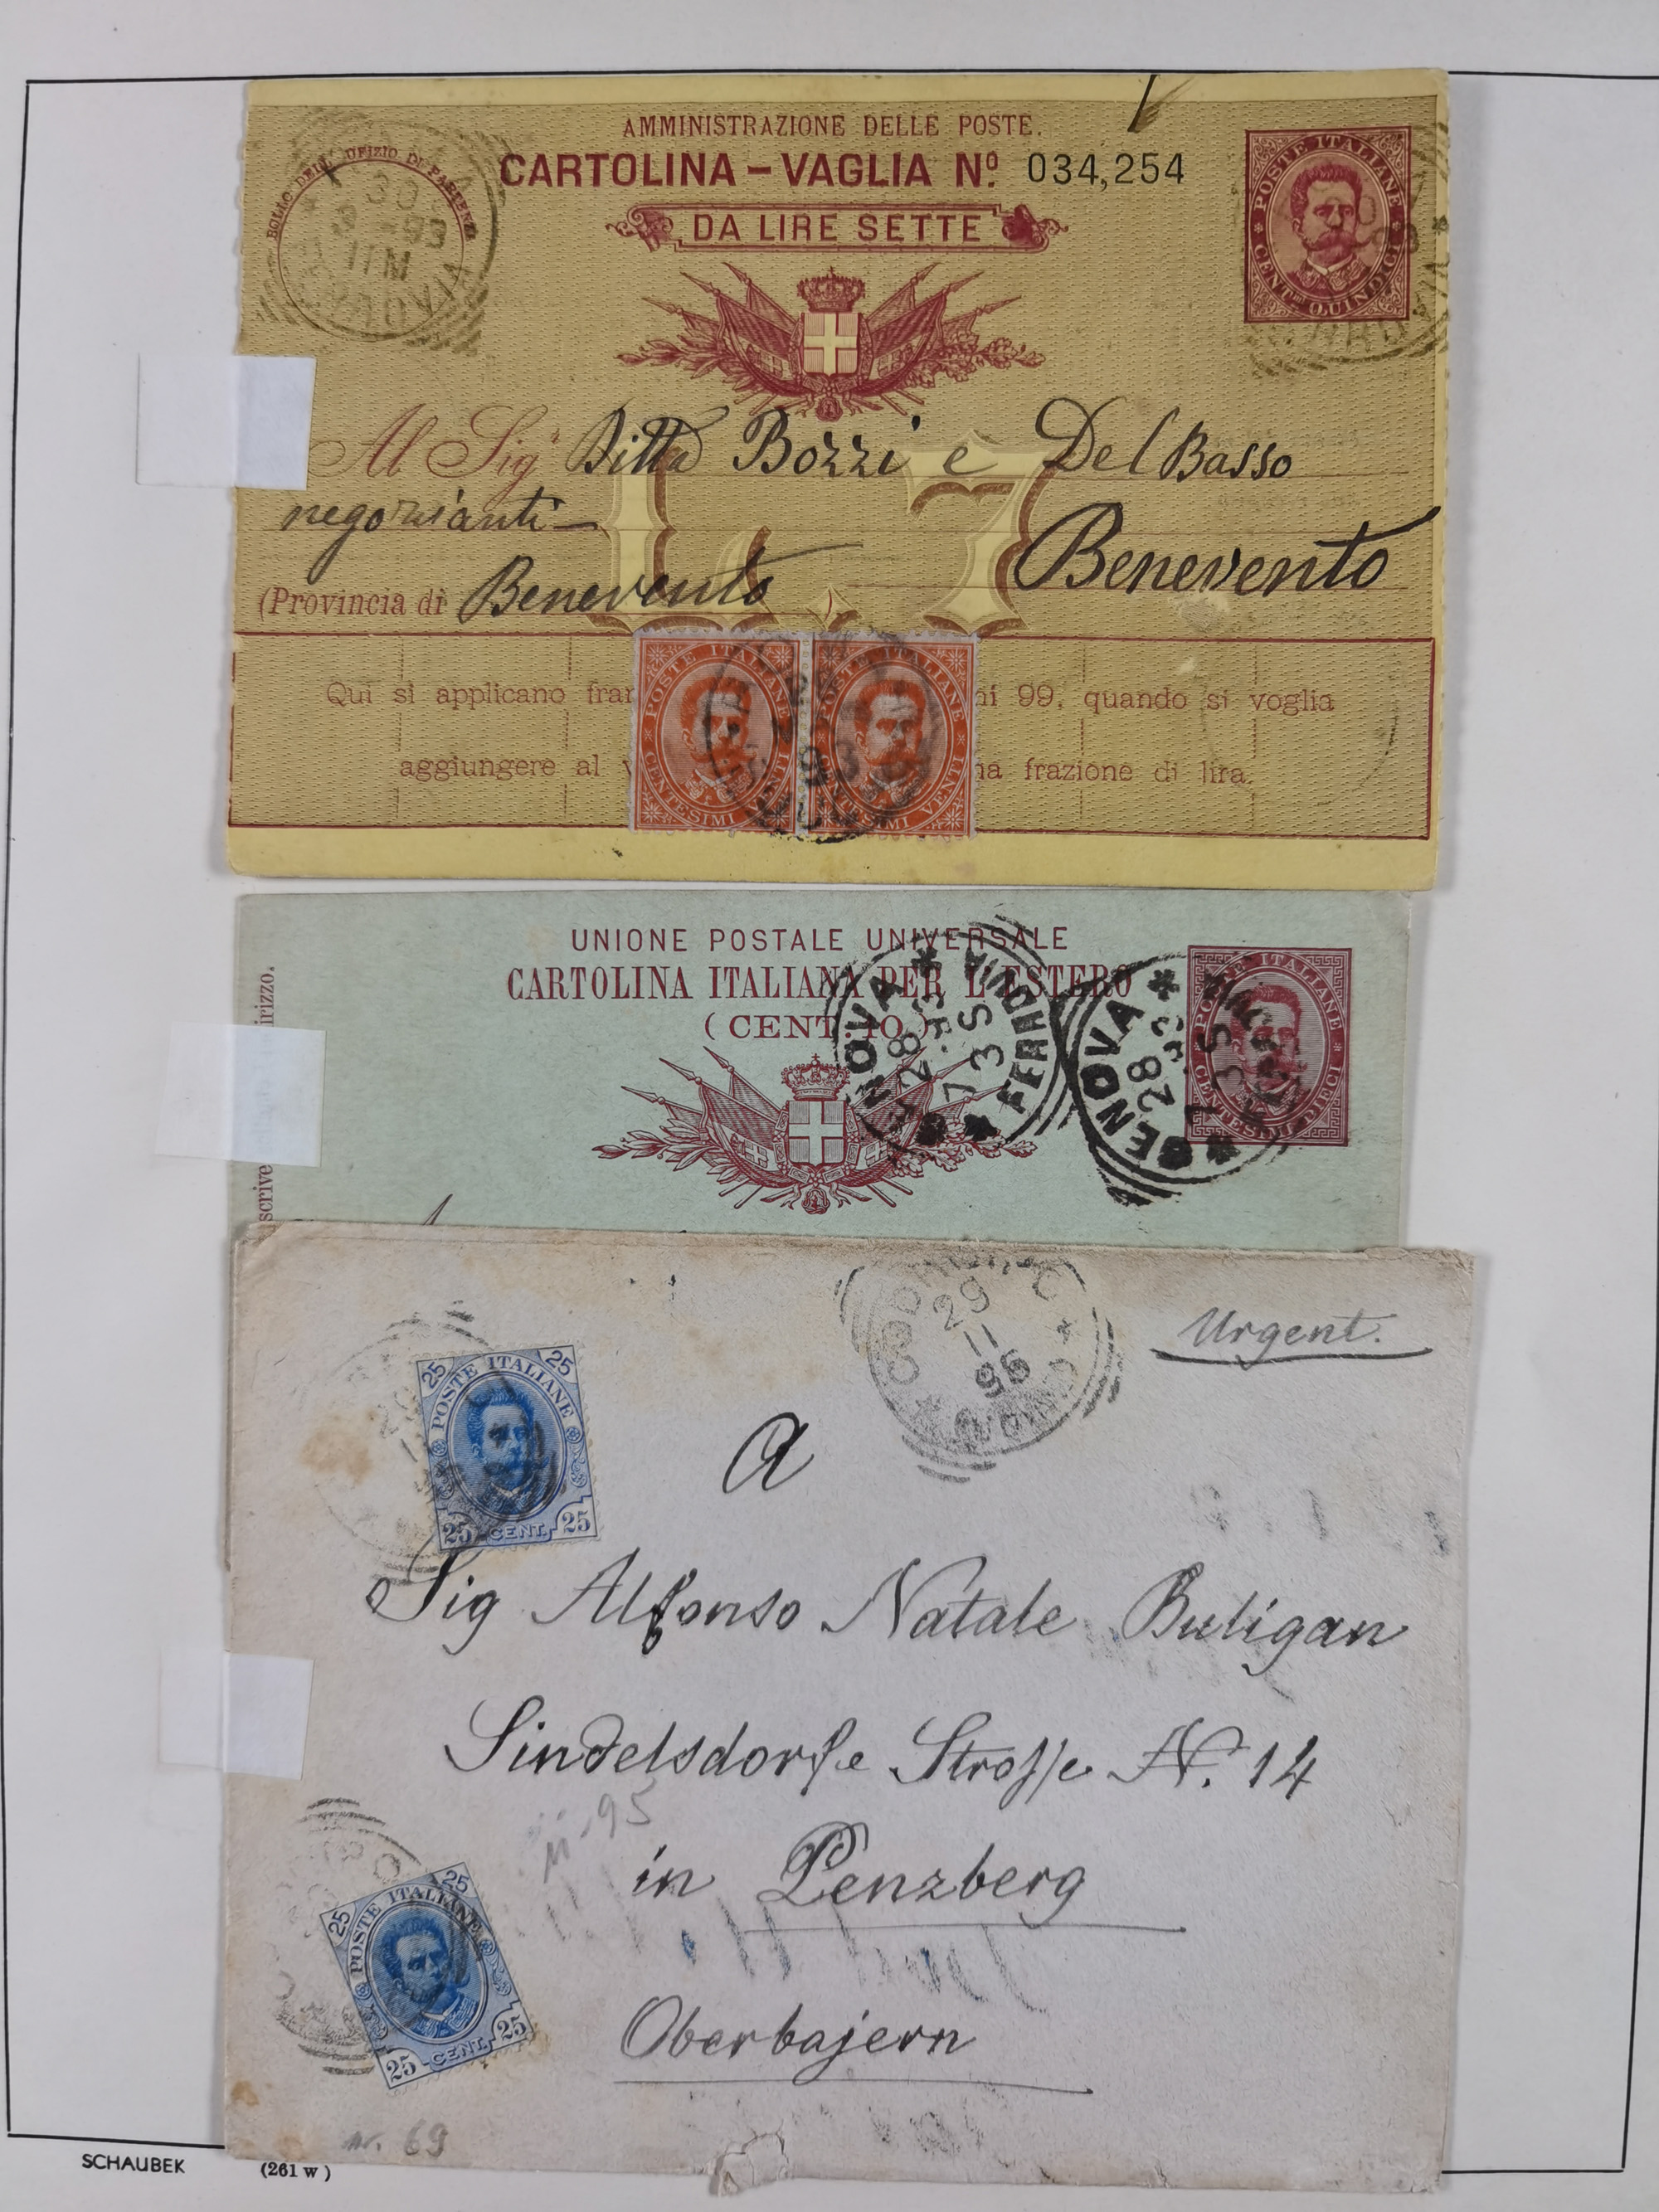 AMMINISTRAZIONE DELLE POSTE.
CARTOLINA - VAGLIA Nº. 034,254
DA LIRE SETTE
BOLLO DELL' UFIZIO DI PARTENZA
30
93
11 M
POSTE ITALIANE
CENT.MI QUINDICI
Al Sig.r Ditta Bozzi e Del Basso
negozianti -
Benevento
(Provincia di Benevento
L. 7
Qui si applicano fran ni 99, quando si voglia
aggiungere al v na frazione di lira.
POSTE ITALIANE
CENTESIMI VENTI
POSTE ITALIANE
CENTESIMI VENTI
93
UNIONE POSTALE UNIVERSALE
CARTOLINA ITALIANA PER L'ESTERO
(CENT. 10)
irizzo.
scrive
GENOVA
FERROVIA
28
93
7 3 S
GENOVA
28
POSTE ITALIANE
CENTESIMI DIECI
29
11
95
Urgent.
25 25
POSTE ITALIANE
25 CENT. 25
A
Sig Alfonso Natale Buligan
Sindelsdorfe Strosse N. 14
11-95
in Penzberg
Oberbajern
25 25
POSTE ITALIANE
25 CENT. 25
nr. 69
SCHAUBEK (261 w)